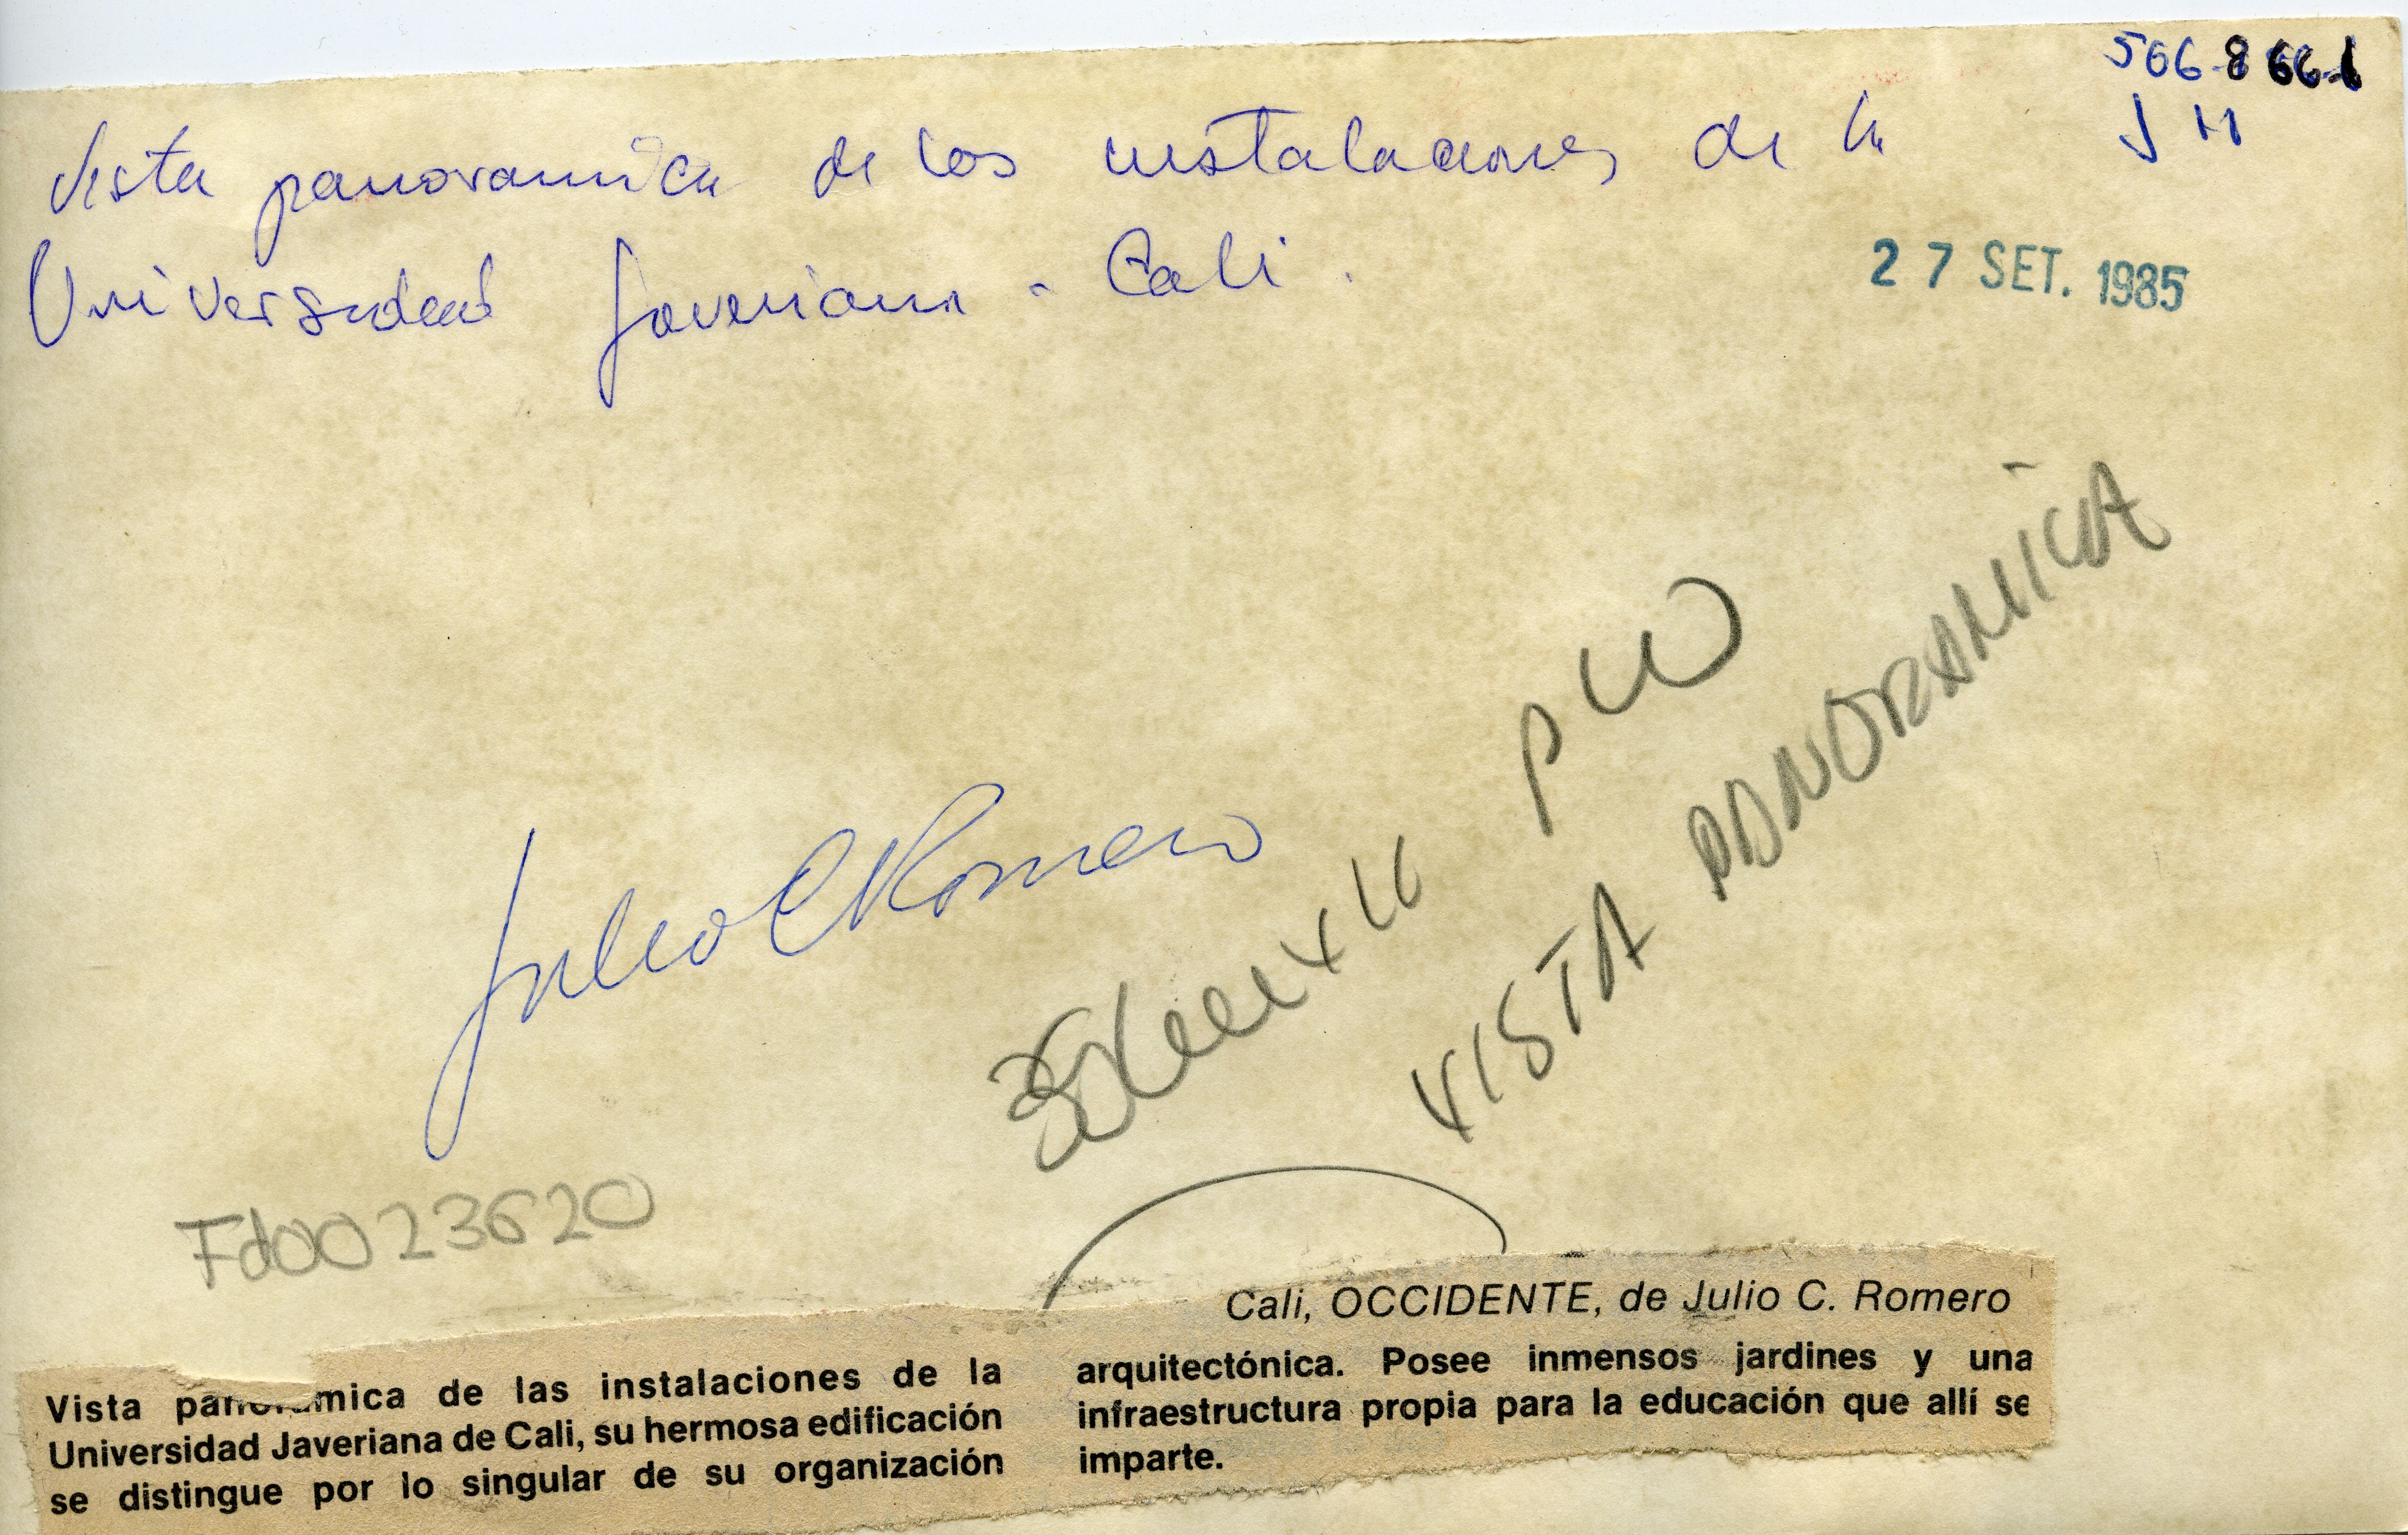 566-8661
J H
Vista panoramica de las instalaciones de la
Universidad Javeriana - Cali.
27 SET. 1985
Julio C Romero
VISTA PANORAMICA
Fd0023620
Cali, OCCIDENTE, de Julio C. Romero
Vista panorámica de las instalaciones de la
Universidad Javeriana de Cali, su hermosa edificación
se distingue por lo singular de su organización
arquitectónica. Posee inmensos jardines y una
infraestructura propia para la educación que allí se
imparte.